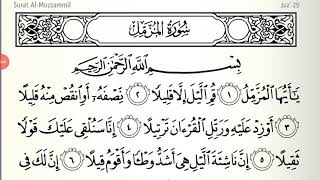 Surat Al-Muzzammil Juz' 29
سُورَةُ المُزَّمِّلِ
بِسْمِ اللَّهِ الرَّحْمَٰنِ الرَّحِيمِ
يَا أَيُّهَا الْمُزَّمِّلُ ١ قُمِ اللَّيْلَ إِلَّا قَلِيلًا ٢ نِصْفَهُ أَوِ انْقُصْ مِنْهُ قَلِيلًا
٣ أَوْ زِدْ عَلَيْهِ وَرَتِّلِ الْقُرْآنَ تَرْتِيلًا ٤ إِنَّا سَنُلْقِي عَلَيْكَ قَوْلًا
ثَقِيلًا ٥ إِنَّ نَاشِئَةَ اللَّيْلِ هِيَ أَشَدُّ وَطْئًا وَأَقْوَمُ قِيلًا ٦ إِنَّ لَكَ فِي